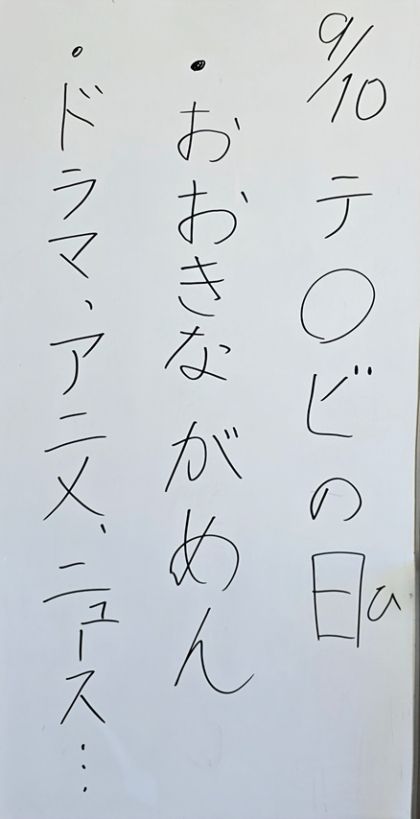 9/10 テ〇ビの日ひ
・おおきながめん
・ドラマ、アニメ、ニュース…